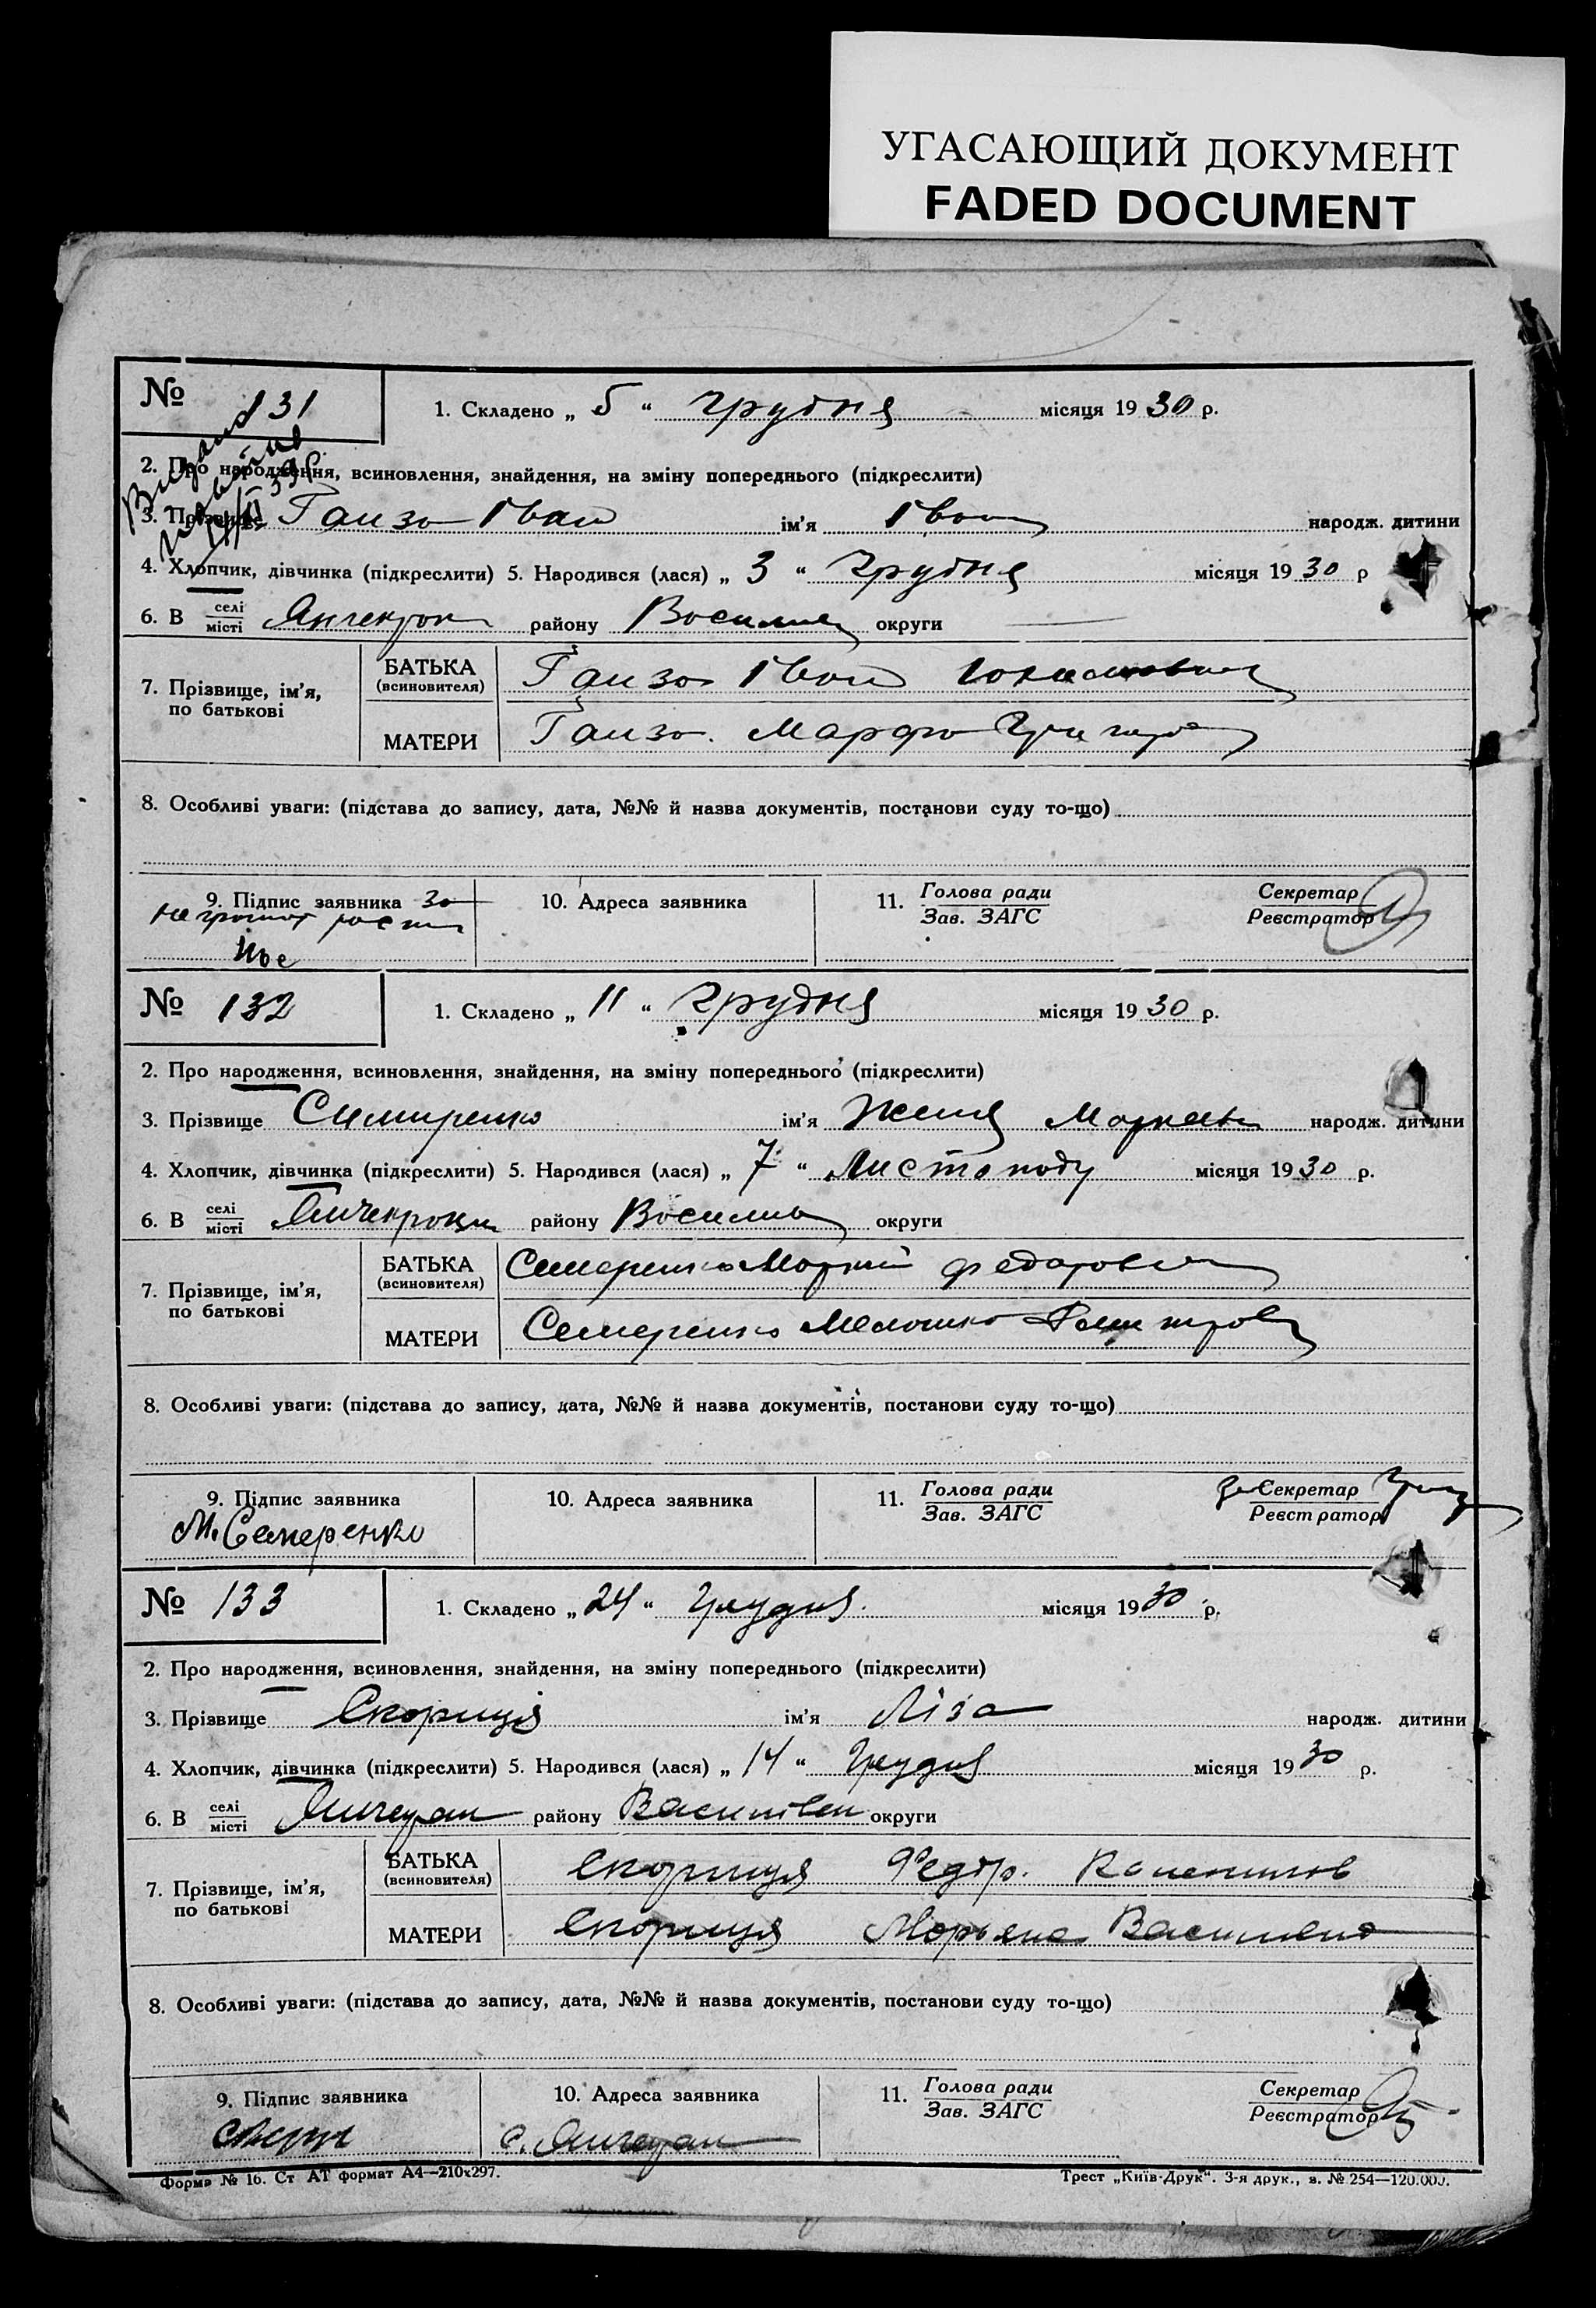 УГАСАЮЩИЙ ДОКУМЕНТ
FADED DOCUMENT
№ 131
1. Складено „ 5 “ грудня місяця 19 30 р.
2. Про народження, всиновлення, знайдення, на зміну попереднього (підкреслити)
3. Прізвище Ганза Іван ім’я Іван народж. дитини
4. Хлопчик, дівчинка (підкреслити) 5. Народився (лася) „ 3 “ грудня місяця 19 30 р
6. В селі місті Янчекрак району Василів округи
7. Прізвище, ім’я, по батькові
БАТЬКА (всиновителя) Ганза Іван
МАТЕРИ Ганза. Марфа
8. Особливі уваги: (підстава до запису, дата, №№ й назва документів, постанови суду то-що)
9. Підпис заявника за
10. Адреса заявника
11. Голова ради Зав. ЗАГС
Секретар Реєстратор
№ 132
1. Складено „ 11 “ грудня місяця 19 30 р.
2. Про народження, всиновлення, знайдення, на зміну попереднього (підкреслити)
3. Прізвище Симиренко ім’я Женя народж. дитини
4. Хлопчик, дівчинка (підкреслити) 5. Народився (лася) „ 7 “ Листопаду місяця 19 30 р.
6. В селі місті району Василів округи
7. Прізвище, ім’я, по батькові
БАТЬКА (всиновителя) Семеренко Маркій Федорович
МАТЕРИ Семеренко
8. Особливі уваги: (підстава до запису, дата, №№ й назва документів, постанови суду то-що)
9. Підпис заявника
М. Семеренко
10. Адреса заявника
11. Голова ради Зав. ЗАГС
За Секретар Реєстратор
№ 133
1. Складено „ 24 “ Грудня місяця 19 30 р.
2. Про народження, всиновлення, знайдення, на зміну попереднього (підкреслити)
3. Прізвище Скориція ім’я Ліза народж. дитини
4. Хлопчик, дівчинка (підкреслити) 5. Народився (лася) „ 14 “ Грудня місяця 19 30 р.
6. В селі місті району Василівськ округи
7. Прізвище, ім’я, по батькові
БАТЬКА (всиновителя) Скориця Федір.
МАТЕРИ Скориця Марьяна Василівна
8. Особливі уваги: (підстава до запису, дата, №№ й назва документів, постанови суду то-що)
9. Підпис заявника
10. Адреса заявника
11. Голова ради Зав. ЗАГС
Секретар Реєстратор
Форма № 16. Ст АТ формат А4—210х297.
Трест „Київ-Друк“. 3-я друк., з. № 254—120.000.